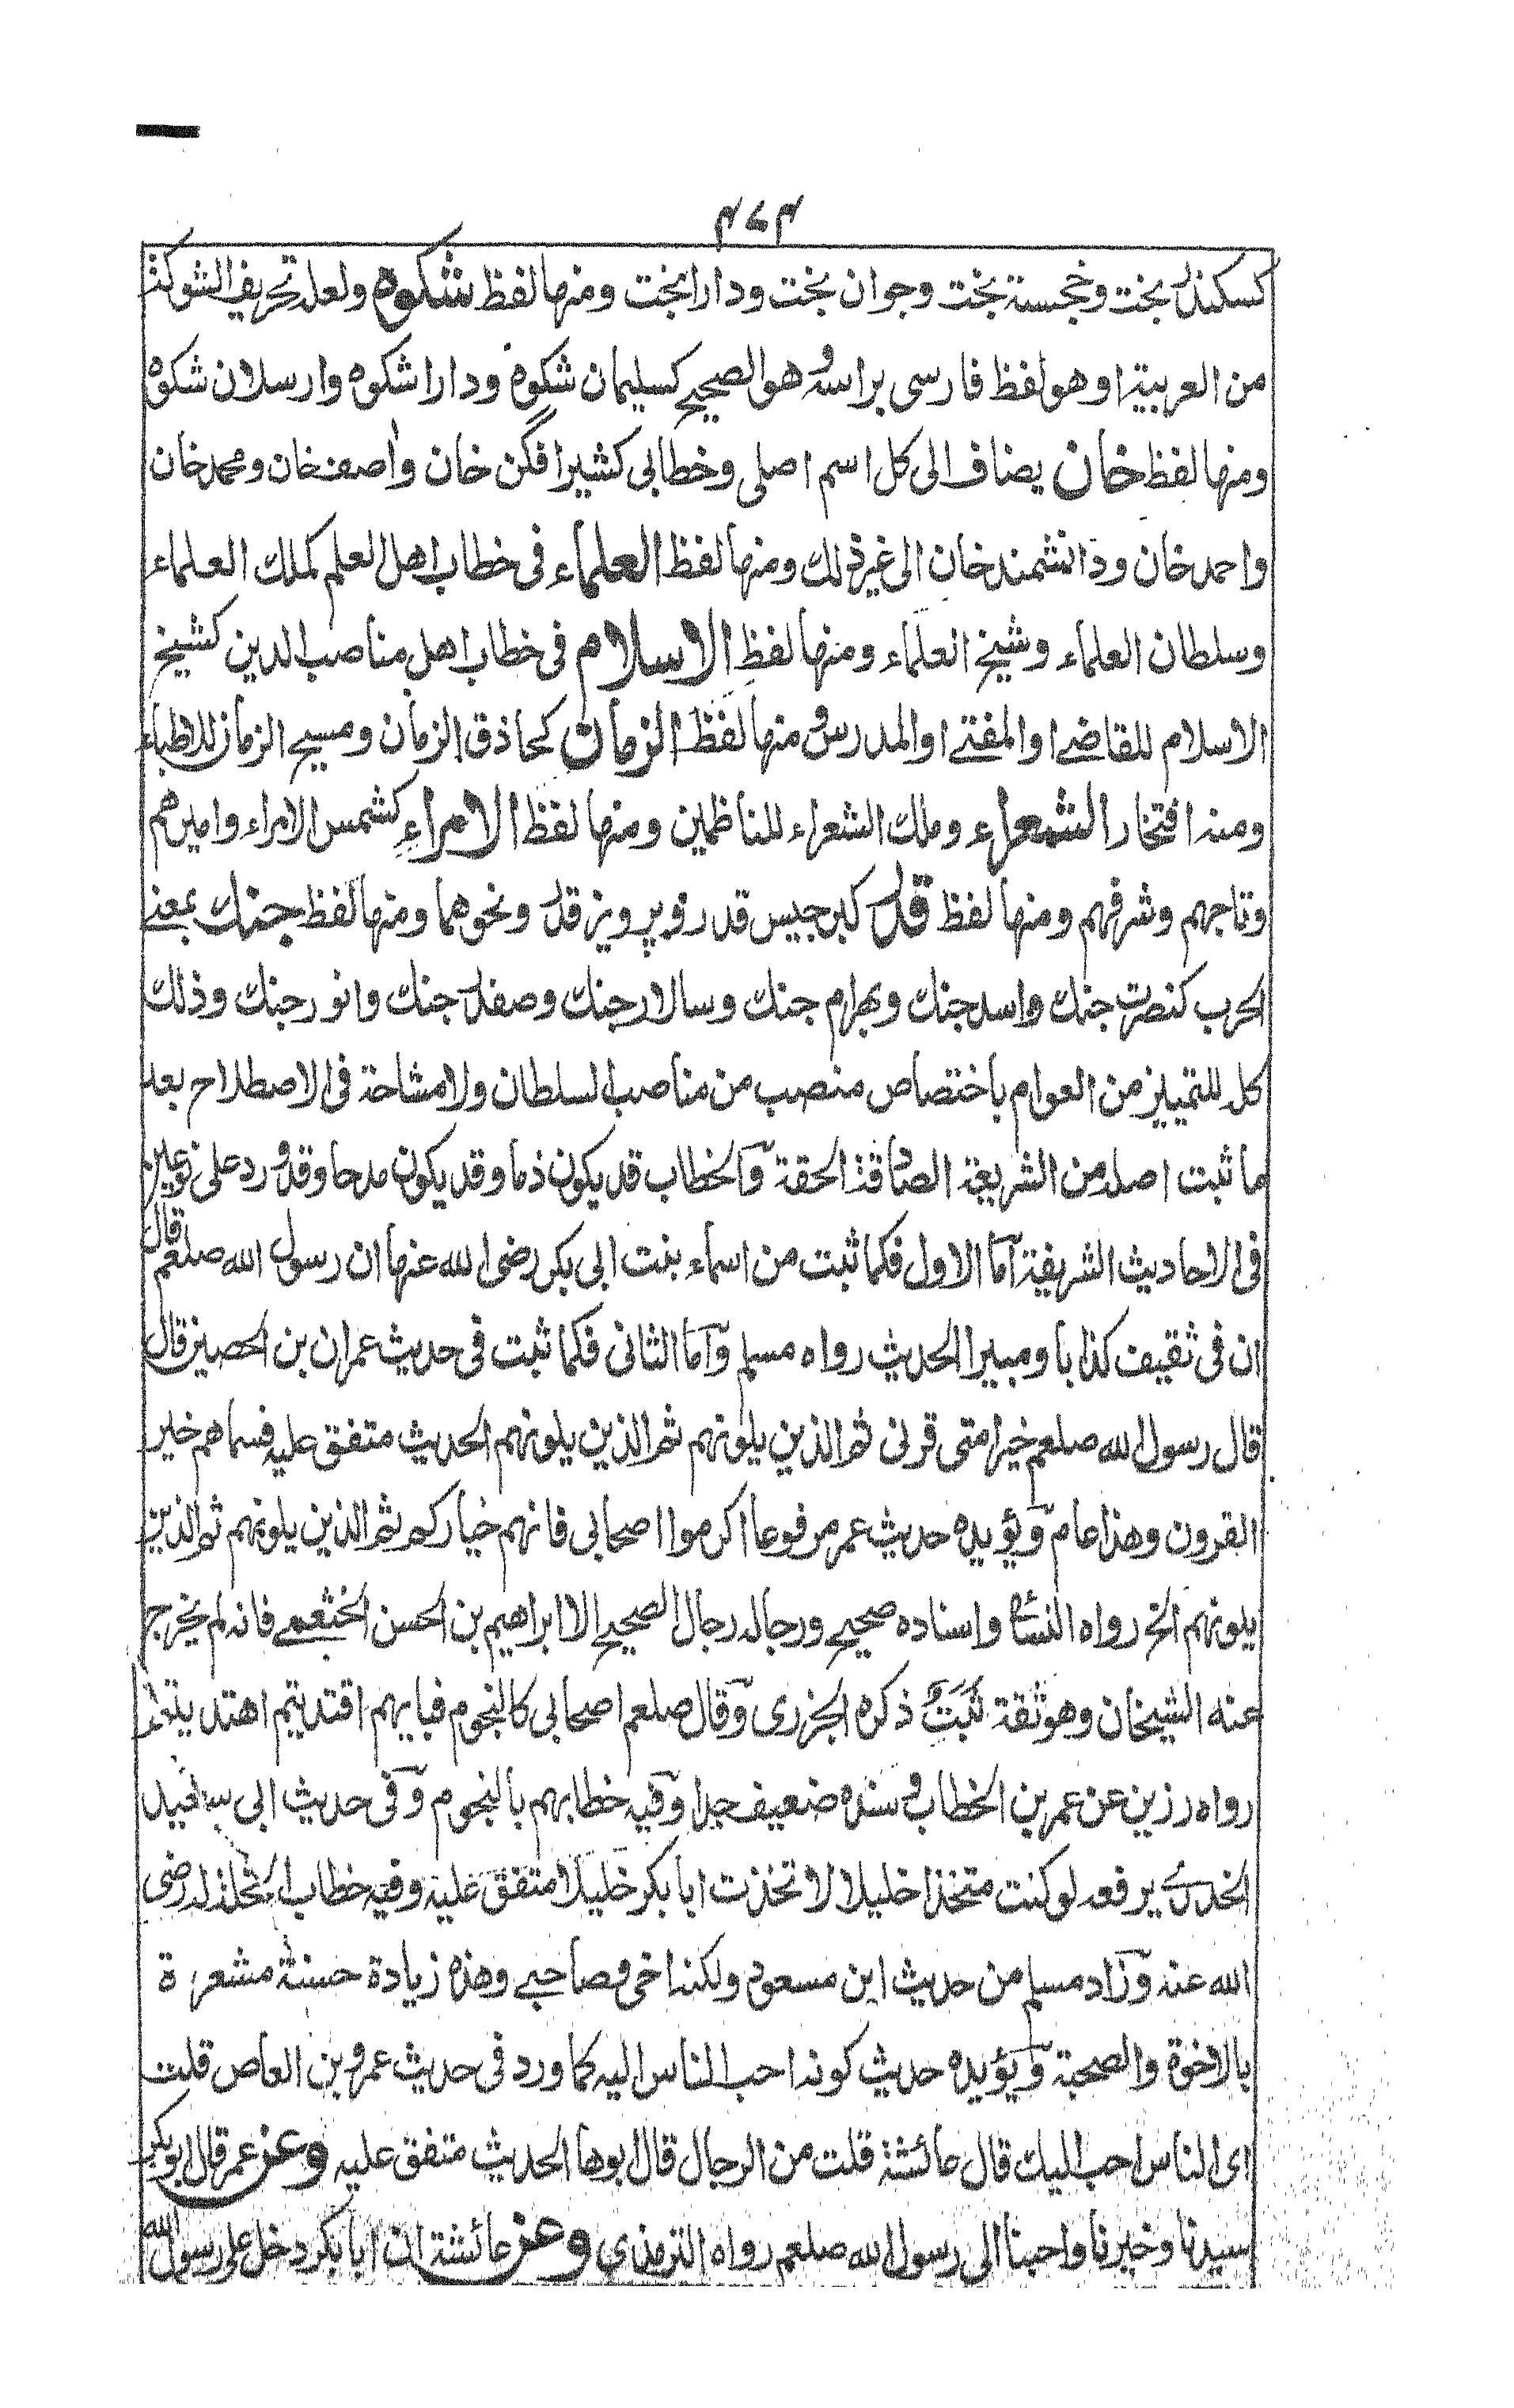 ۴۷۴
كسكندر بخت وخجسته بخت وجوان بخت ودارا بخت ومنها لفظ شكوه ولعله تحريف الشوكة
من العربية او هو لفظ فارسى براسه وهو الصحيح كسليمان شكوه ودارا شكوه وارسلان شكوه
ومنها لفظ خان يضاف الى كل اسم اصلى وخطابى كشير افگن خان واصف خان ومحمد خان
واحمد خان ودانشمند خان الى غير ذلك ومنها لفظ العلماء فى خطاب اهل العلم كملك العلماء
وسلطان العلماء وشيخ العلماء ومنها لفظ الاسلام فى خطاب اهل مناصب الدين كشيخ
الاسلام للقاضے او المفتے او المدرس ومنها لفظ الزمان كحاذق الزمان ومسيح الزمان للاطباء
ومنه افتخار الشعراء وملك الشعراء للناظمين ومنها لفظ الامراء كشمس الامراء واميرهم
وتاجهم وشرفهم ومنها لفظ قدر كبرجيس قدر وپرويز قدر ونحوهما ومنها لفظ جنك بمعنے
الحرب كنصرت جنك واسد جنك وبهرام جنك وسالار جنك وصفدر جنك وانور جنك وذلك
كله للتمييز من العوام باختصاص منصب من مناصب السلطان ولا مشاحة فى الاصطلاح بعد
ما ثبت اصله من الشريعة الصادقة الحقة والخطاب قد يكون ذما وقد يكون مدحا وقد ورد على نوعين
فى الاحاديث الشريفة اما الاول فكما ثبت من اسماء بنت ابى بكر رضى الله عنها ان رسول الله صلعم قال
ان فى ثقيف كذابا ومبيرا الحديث رواه مسلم واما الثانى فكما ثبت فى حديث عمران بن الحصين قال
قال رسول الله صلعم خير امتى قرنى ثم الذين يلونهم ثم الذين يلونهم الحديث متفق عليه فسماهم خير
القرون وهذا عام ويؤيده حديث عمر مرفوعا اكرموا اصحابى فانهم خياركم ثم الذين يلونهم ثم الذين
يلونهم الخ رواه النسائى واسناده صحيح ورجاله رجال الصحيح الا ابراهيم بن الحسن الخثعمے فانه لم يخرج
عنه الشيخان وهو ثقة ثبت ذكره الجزرى وقال صلعم اصحابى كالنجوم فبايهم اقتديتم اهتديتم
رواه رزين عن عمر بن الخطاب وسنده ضعيف جدا وفيه خطابهم بالنجوم وفى حديث ابى سعيد
الخدرے يرفعه لو كنت متخذا خليلا لاتخذت ابا بكر خليلا متفق عليه وفيه خطاب الخلة له رضى
الله عنه وزاد مسلم من حديث ابن مسعود ولكنه اخى وصاحبے وهذه زيادة حسنة مشعرة
بالاخوة والصحبة ويؤيده حديث كونه احب الناس اليه كما ورد فى حديث عمرو بن العاص قلت
اى الناس احب اليك قال عائشة قلت من الرجال قال ابوها الحديث متفق عليه وعن عمر قال ابو بكر
سيدنا وخيرنا واحبنا الى رسول الله صلعم رواه الترمذي وعن عائشة ان ابا بكر دخل على رسول الله